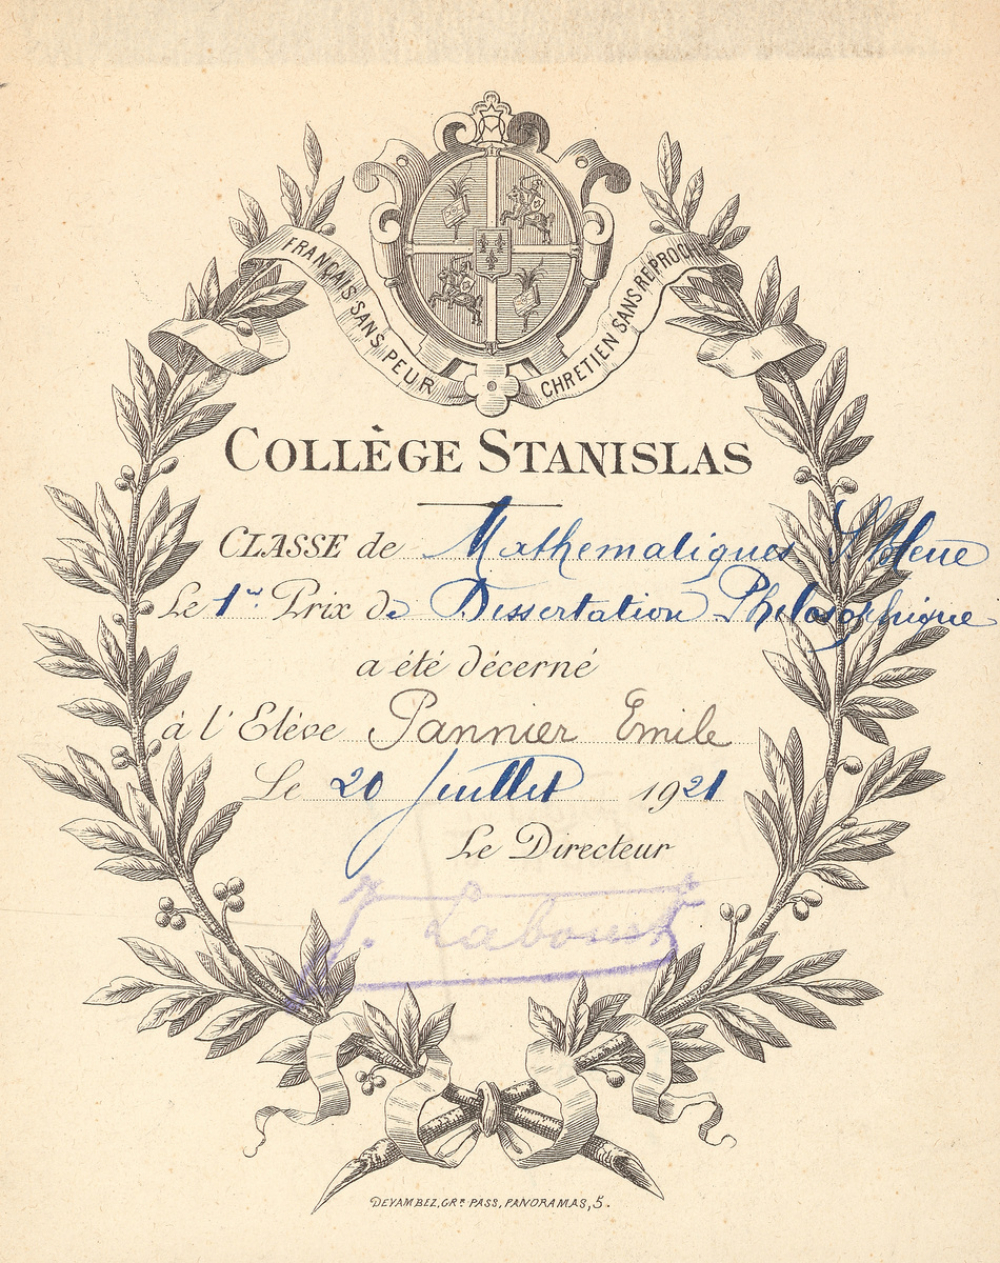 FRANÇAIS SANS PEUR
CHRETIEN SANS REPROCHE
COLLÈGE STANISLAS
CLASSE de Mathematiques
Le 1er Prix de Dissertation Philosophique
a été décerné
à l'Elève Pannier Emile
Le 20 Juillet 1921
Le Directeur
J. Labourt
DEVAMBEZ, GRR. PASS. PANORAMAS, 5.